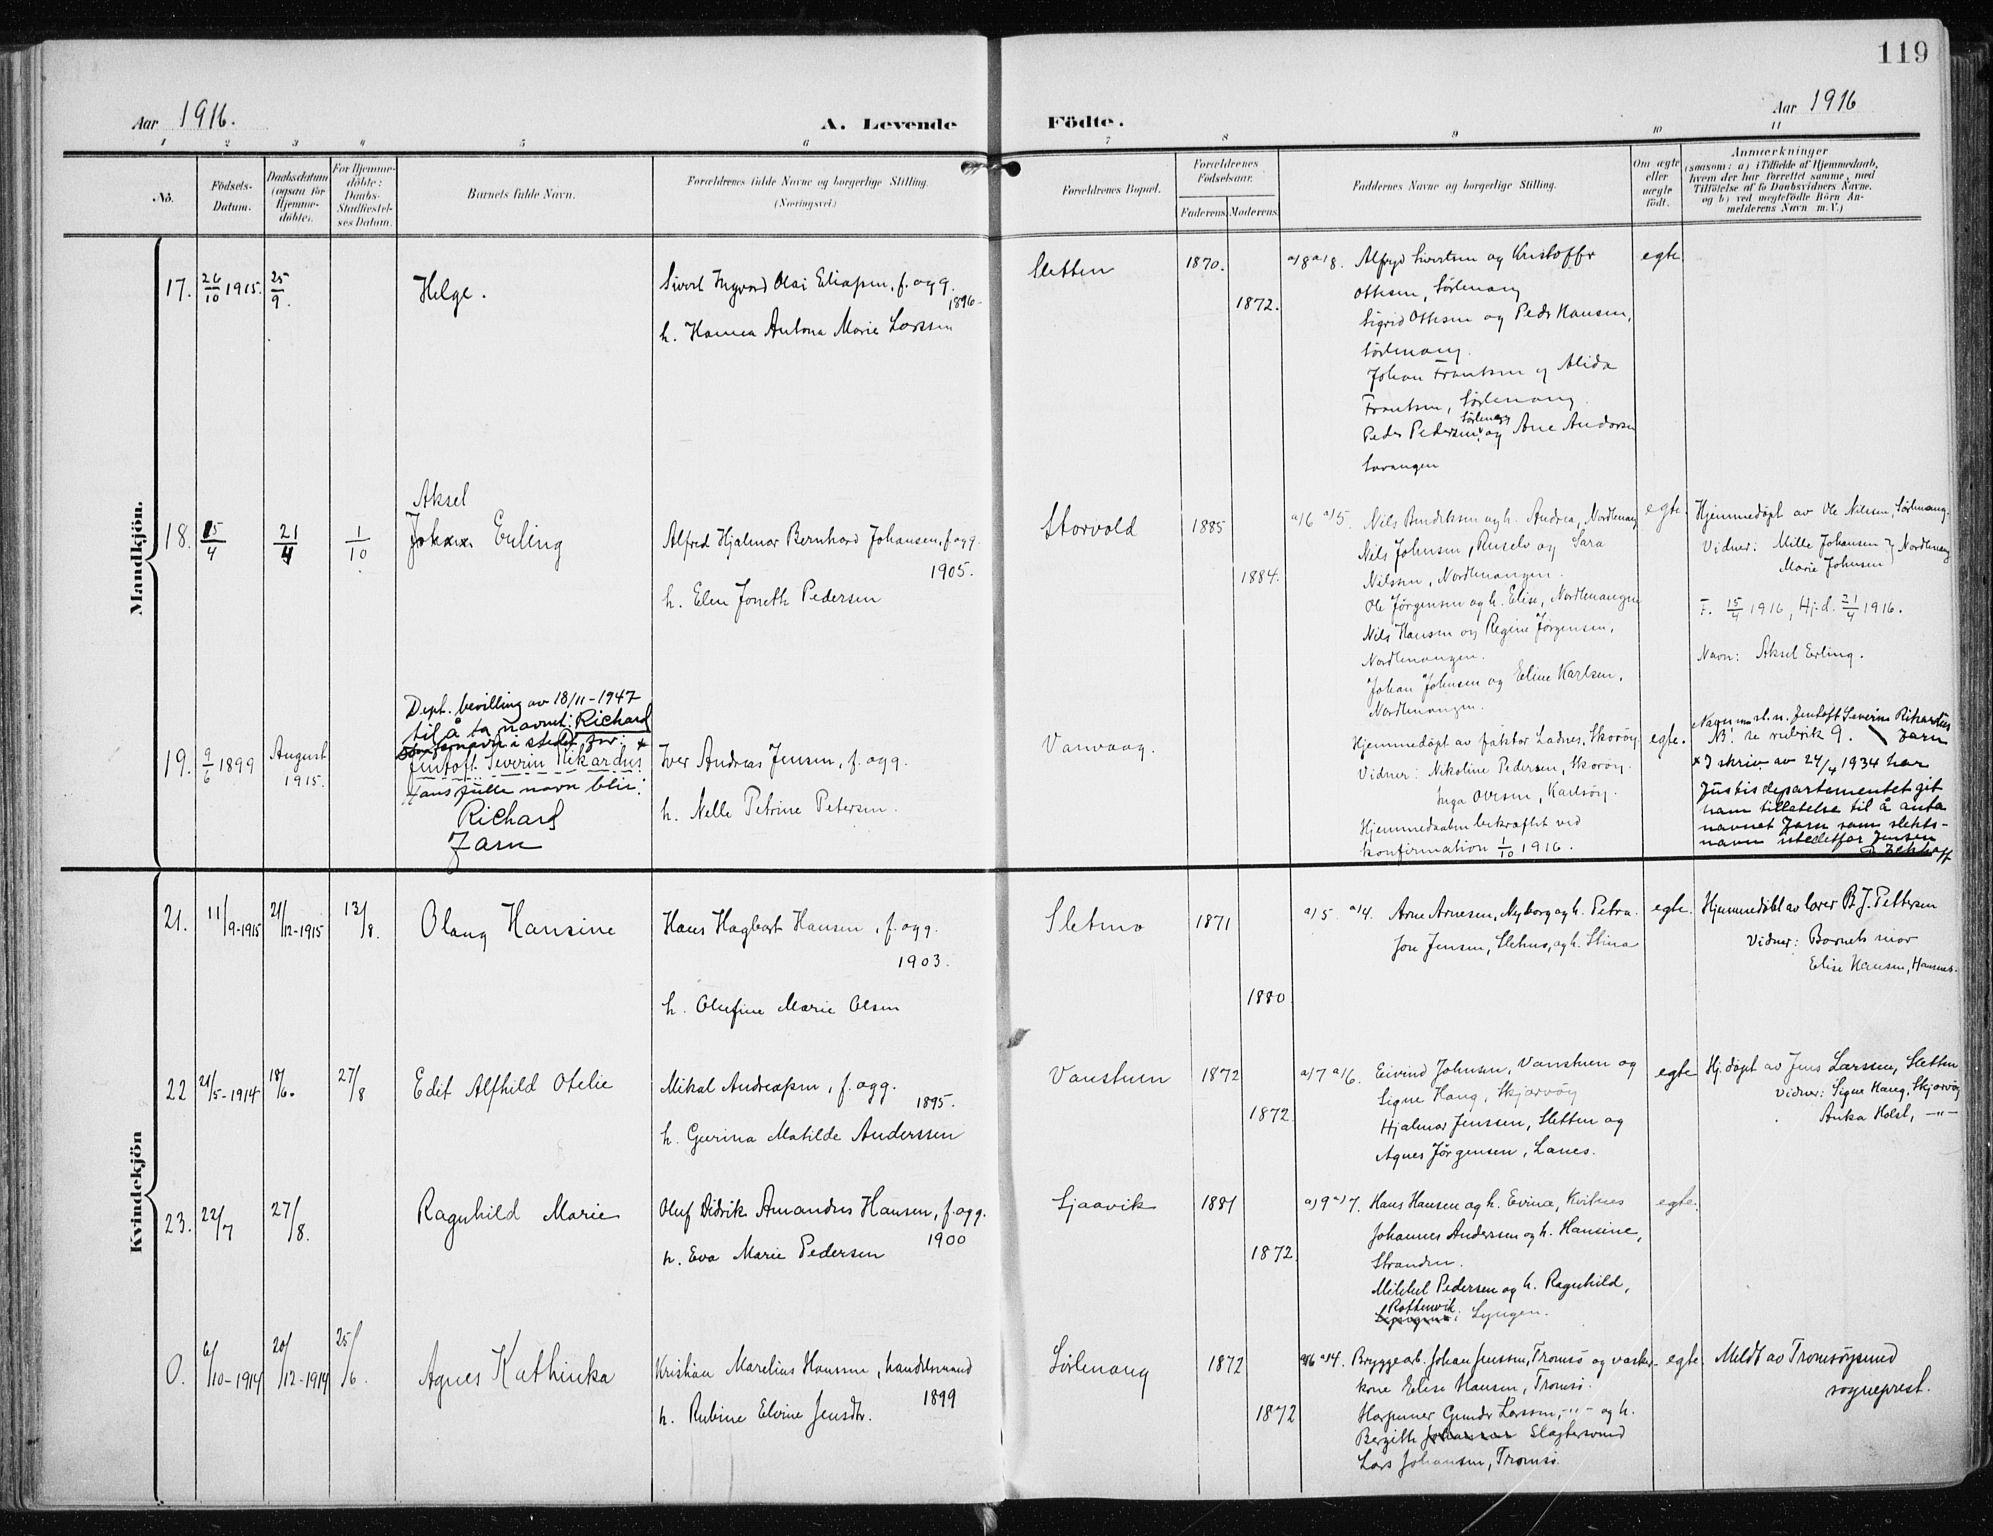 119
Aar 1916.
A. Levende Födte.
Aar 1916
1 2 3 4 5 6 7 8 9 10 11
No.
Födsels-
Datum.
Daabsdatum
(ogsaa for
Hjemme-
döbte).
For Hjemme-
döbte:
Daabs-
Stadfæstel-
ses Datum.
Barnets fulde Navn.
Forældrenes fulde Navne og borgerlige Stilling.
(Næringsvei.)
Forældrenes Bopæl.
Forældrenes
Födselsaar.
Faderens. Moderens.
Faddernes Navne og borgerlige Stilling.
Om ægte
eller
uægte
født.
Anmærkninger
(saasom: a) i Tilfælde af Hjemmedaab,
hvem der har forrettet samme, med
Tilföielse af to Daabsvidners Navne,
og b) ved uægtefödte Börn An-
melderens Navn m. V.)
Mandkjön.
17. 26/10 1915. 25/9.
Helge.
Sivert Ingvard Olai Eliassen, f. og g.
1896-
h. Hanna Antona Marie Larssen
Sletten
1870.
1872.
a/8 a/8. Alfryd Sivertsen og Kristoffer
Ottesen, Sörlenang
Sigrid Ottesen og Peder Hansen,
Sörlenang.
Johan Frantsen og Alida
Frantsen, Sörlenang.
Peder Pedersen, Sörlenang og Ane Andersen
egte
18. 15/4 21/4 1/10
Aksel
Johan Erling
Alfred Hjalmar Bernhard Johansen, f. og g.
1905.
h. Elen Joneth Pedersen
Storvold
1885
1884.
a/6 a/5. Nils Bendiksen og h. Andrea, Nordlenang
Nils Johnsen, Ruselv og Sara
Nilssen, Nordlenangen.
Ole Jörgensen og h. Elise, Nordlenangen
Nils Hansen og Regine Jörgensen,
Nordlenangen.
Johan Johnsen og Eline Karlsen,
Nordlenangen.
egte.
Hjemmedöpt av Ole Nilsen, Sörlenang.
Vidner: Mille Johansen } Nordlenang
Marie Johnsen
F. 15/4 1916, Hj.d. 21/4 1916.
Navn: Aksel Erling.
19. 9/6 1899 August 1915.
Dept. bevilling av 18/11-1947
til å ta navnet: Richard
som fornavn i stedet for:
Jentoft Severin Rikardus
Hans fulle navn blir:
Richard
Jarn
Iver Andreas Jensen, f. og g.
h. Nelle Petrine Petersen.
Vanvaag.
Hjemmedöpt av faktor Ladnes, Skoröy
Vidner: Nikoline Pedersen, Skoröy.
Inga Olesen, Karlsöy.
Hjemmedaaben bekræftet ved
konfirmation 1/10 1916.
egte.
Jentoft Severin Rikardus
Jarn
N.B. se rubrik 9.
x I skriv. av 24/4 1934 har
Justisdepartementet git
ham tilladelse til å anta
navnet Jarn som slekts-
navn istedetfor Jensen
Kvindekjön
21. 11/9-1915 21/12-1915 13/8.
Olaug Hansine
Hans Hagbart Hansen, f. og g.
1903.
h. Olufine Marie Olsen
Sletmo
1871
1880.
a/5. a/4. Arne Arnesen, Nyborg og h. Petra.
Jon Jensen, Sletmo, og h. Stina
egte.
Hjemmedöbt av lærer B. J. Pettersen
Vidner: Barnets mor
Elise Hansen, Hansnes.
22 21/5-1914 18/6. 27/8
Edit Alfhild Otelie
Mikal Andreassen, f. og g.
1895.
h. Gurina Matilde Anderssen
Vanstuen
1872
1872
a/7 a/6. Eivind Johnsen, Vanstuen og
Signe Haug, Skjærvöy
Hjalmar Jenssen, Sletten og
Agnes Jörgensen, Lanes.
egte
Hj. döpt av Jens Larssen, Sletten
Vidner: Signe Haug, Skjærvöy
Anka Holst, -"-
23. 22/7 27/8.
Ragnhild Marie
Oluf Didrik Amandus Hansen, f. og g.
1900
h. Eva Marie Pedersen
Sjaavik
1881
1872.
a/9 a/7. Hans Hansen og h. Evina, Kvitnes
Johannes Anderssen og h. Hansine,
Stranden.
Mikkel Pedersen og h. Ragnhild,
Rottenvik, Lyngen.
egte.
0. 6/10-1914 20/12-1914 25/6.
Agnes Kathinka
Kristian Marelius Hansen, handelsmand
1899
h. Rubine Elvine Jensdtr.
Sörlenang
1872
1872
a/6 a/4. Bryggearb. Johan Jenssen, Tromsö og vasker-
kone Elise Hansen, Tromsö.
Harpuner Gunder Larssen, -"- og h.
Bergith Johansen Slagtersvend
Lars Johansen, Tromsö.
egte.
Meldt av Tromsöysund
sogneprest.